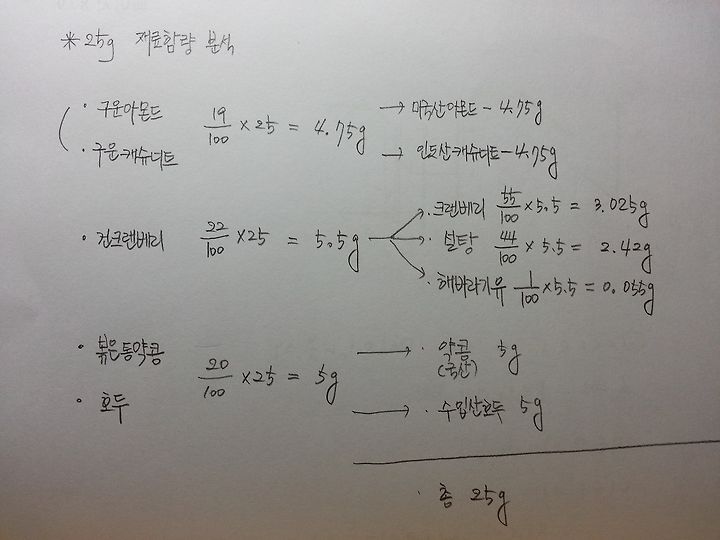 * 25g 재료함량 분석
· 구운아몬드 19/100 × 25 = 4.75g → 미국산아몬드 - 4.75g
· 구운캐슈너트 → 인도산캐슈너트 - 4.75g
· 건크랜베리 22/100 × 25 = 5.5g → · 크랜베리 55/100 × 5.5 = 3.025g
· 설탕 44/100 × 5.5 = 2.42g
· 해바라기유 1/100 × 5.5 = 0.055g
· 볶은통약콩 20/100 × 25 = 5g → · 약콩 5g
(국산)
· 호두 → · 수입산호두 5g
· 총 25g